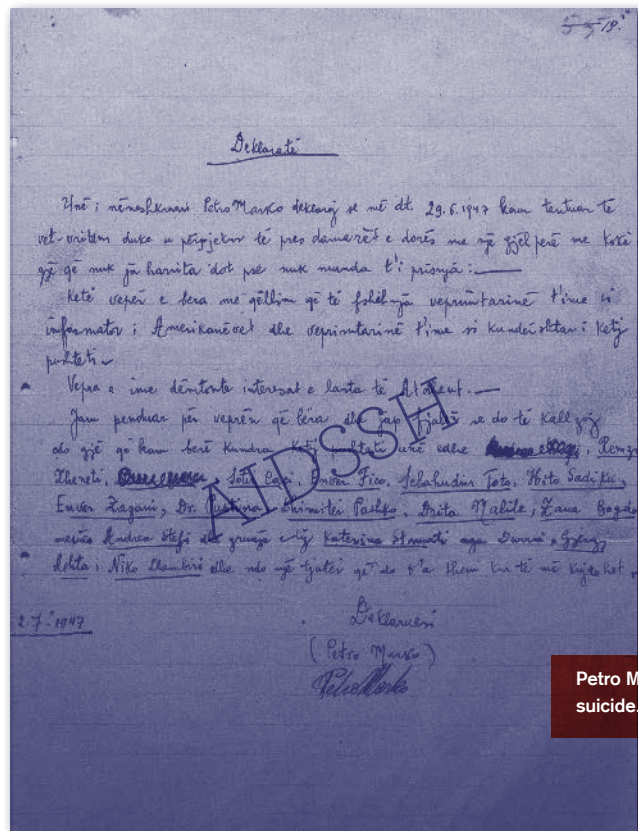 19.
Deklaratë
Unë i nënëshkruari Petro Marko deklaroj se më dt. 29.6.1947 kam tentuar të
vet-vritem duke u përpjekur të pres damarët e dorës me një gjel përë me kokë
gjë që nuk ja harrita dot pse nuk munda t'i prisnja:
Ketë vepër e bera me qëllim që të fshëhnja veprimtarinë t'ime si
informator i Amerikanëvet dhe veprimtarinë t'ime si kundërshtar i ketij
pushteti
Vepra e ime dëmtonte interesat e larta të Atdheut.
Jam penduar për veprën që bëra dhe jap fjalën se do të kallzoj
do gjë që kam berë kundra ketij pushteti unë edhe Remzi
Xhereti, Enver Fico, Selahudin Toto, Hito Sadiku,
Enver Zagani, Dr. Dhimitër Pashko, Drita
mesiës Andrea Stefi grunja e tij Katerina nga Durrsi, Gjergj
Niko dhe ndo një tjatër që do t'a them kur të më kujtohet
AIDSSH
2.7.1947
Deklaruesi
(Petro Marko)
Petro Marko
Petro M
suicide.